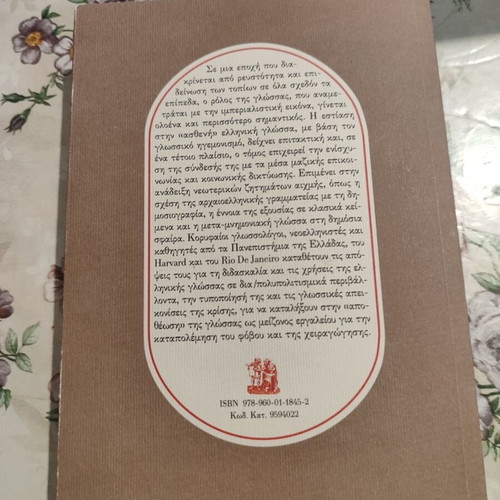 Σε μια εποχή που δια-
κρίνεται από ρευστότητα και επι-
δείνωση των τοπίων σε όλα σχεδόν τα
επίπεδα, ο ρόλος της γλώσσας, που αναμε-
τράται με την ιμπεριαλιστική εικόνα, γίνεται
ολοένα και περισσότερο σημαντικός. Η εστίαση
στην «ασθενή» ελληνική γλώσσα, με βάση τον
γλωσσικό ηγεμονισμό, δείχνει επιτακτική και, σε
ένα τέτοιο πλαίσιο, ο τόμος επιχειρεί την ενίσχυ-
ση της σύνδεσής της με τα μέσα μαζικής επικοι-
νωνίας και κοινωνικής δικτύωσης. Επιμένει στην
ανάδειξη νεωτερικών ζητημάτων αιχμής, όπως η
σχέση της αρχαιοελληνικής γραμματείας με τη δη-
μοσιογραφία, η έννοια της εξουσίας σε κλασικά κεί-
μενα και η μετα-μνημονιακή γλώσσα στη δημόσια
σφαίρα. Κορυφαίοι γλωσσολόγοι, νεοελληνιστές και
καθηγητές από τα Πανεπιστήμια της Ελλάδας, του
Harvard και του Rio De Janeiro καταθέτουν τις από-
ψεις τους για τη διδασκαλία και τις χρήσεις της ελ-
ληνικής γλώσσας σε δια/πολυπολιτισμικά περιβάλ-
λοντα, την τυποποίησή της και τις γλωσσικές απει-
κονίσεις της κρίσης, για να καταλήξουν στην «απο-
θέωση» της γλώσσας ως μείζονος εργαλείου για την
καταπολέμηση του φόβου και της χειραγώγησης.
ISBN 978-960-01-1845-2
Κωδ. Κατ. 9594022